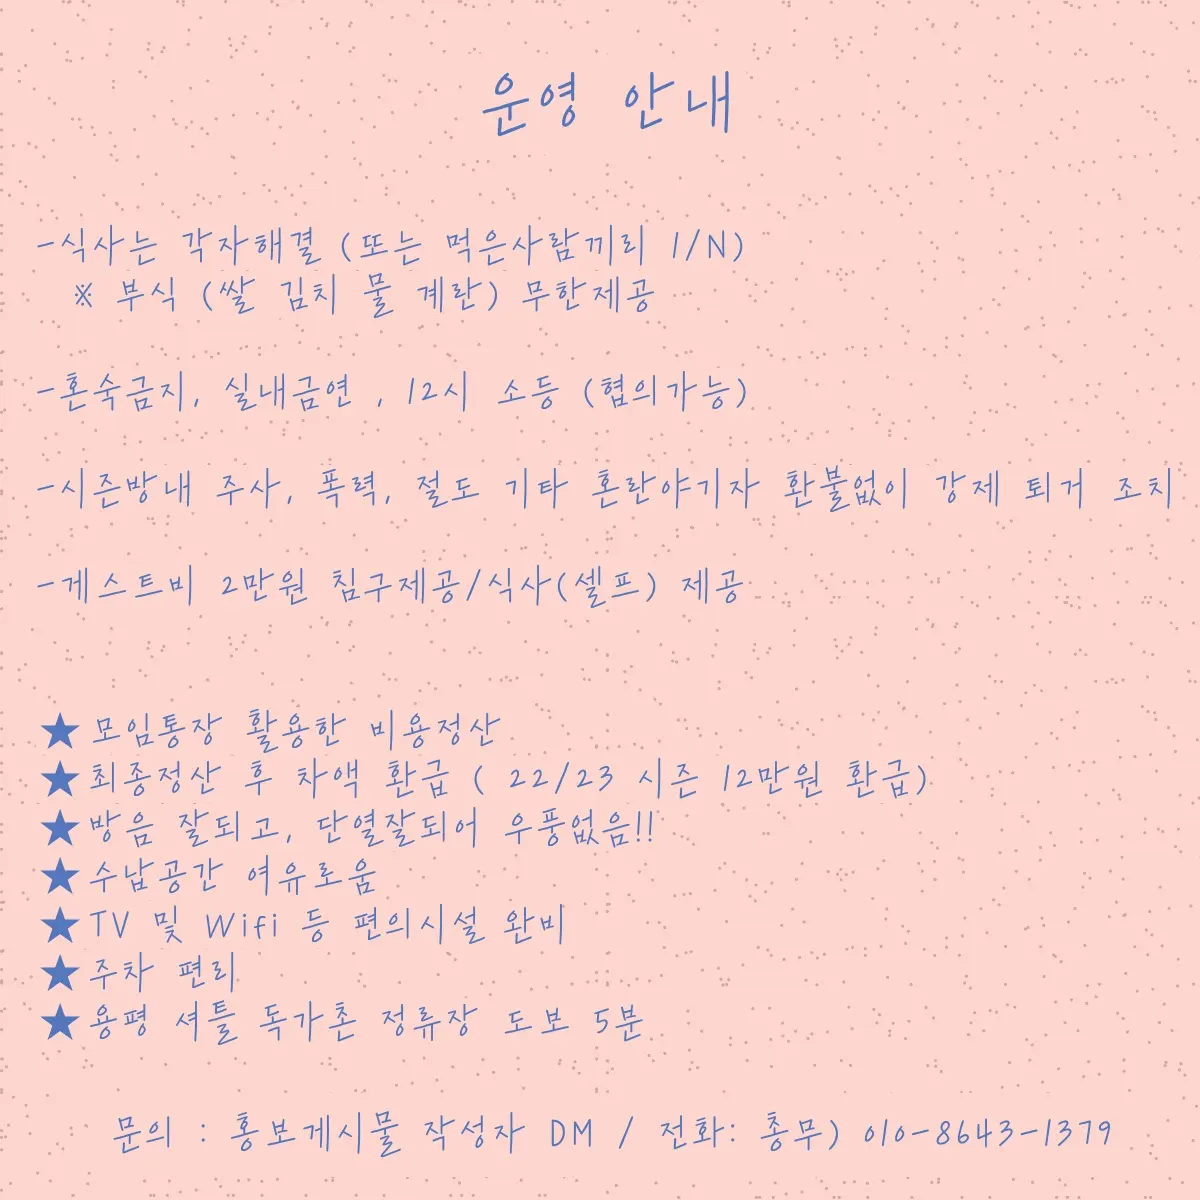 운영 안내
-식사는 각자해결 (또는 먹은사람끼리 1/N)
※ 부식 (쌀 김치 물 계란) 무한제공
-혼숙금지, 실내금연 , 12시 소등 (협의가능)
-시즌방내 주사, 폭력, 절도 기타 혼란야기자 환불없이 강제 퇴거 조치
-게스트비 2만원 침구제공/식사(셀프) 제공
★ 모임통장 활용한 비용정산
★ 최종정산 후 차액 환급 ( 22/23 시즌 12만원 환급)
★ 방음 잘되고, 단열잘되어 우풍없음!!
★ 수납공간 여유로움
★ TV 및 Wifi 등 편의시설 완비
★ 주차 편리
★ 용평 셔틀 독가촌 정류장 도보 5분
문의 : 홍보게시물 작성자 DM / 전화: 총무) 010-8643-1379